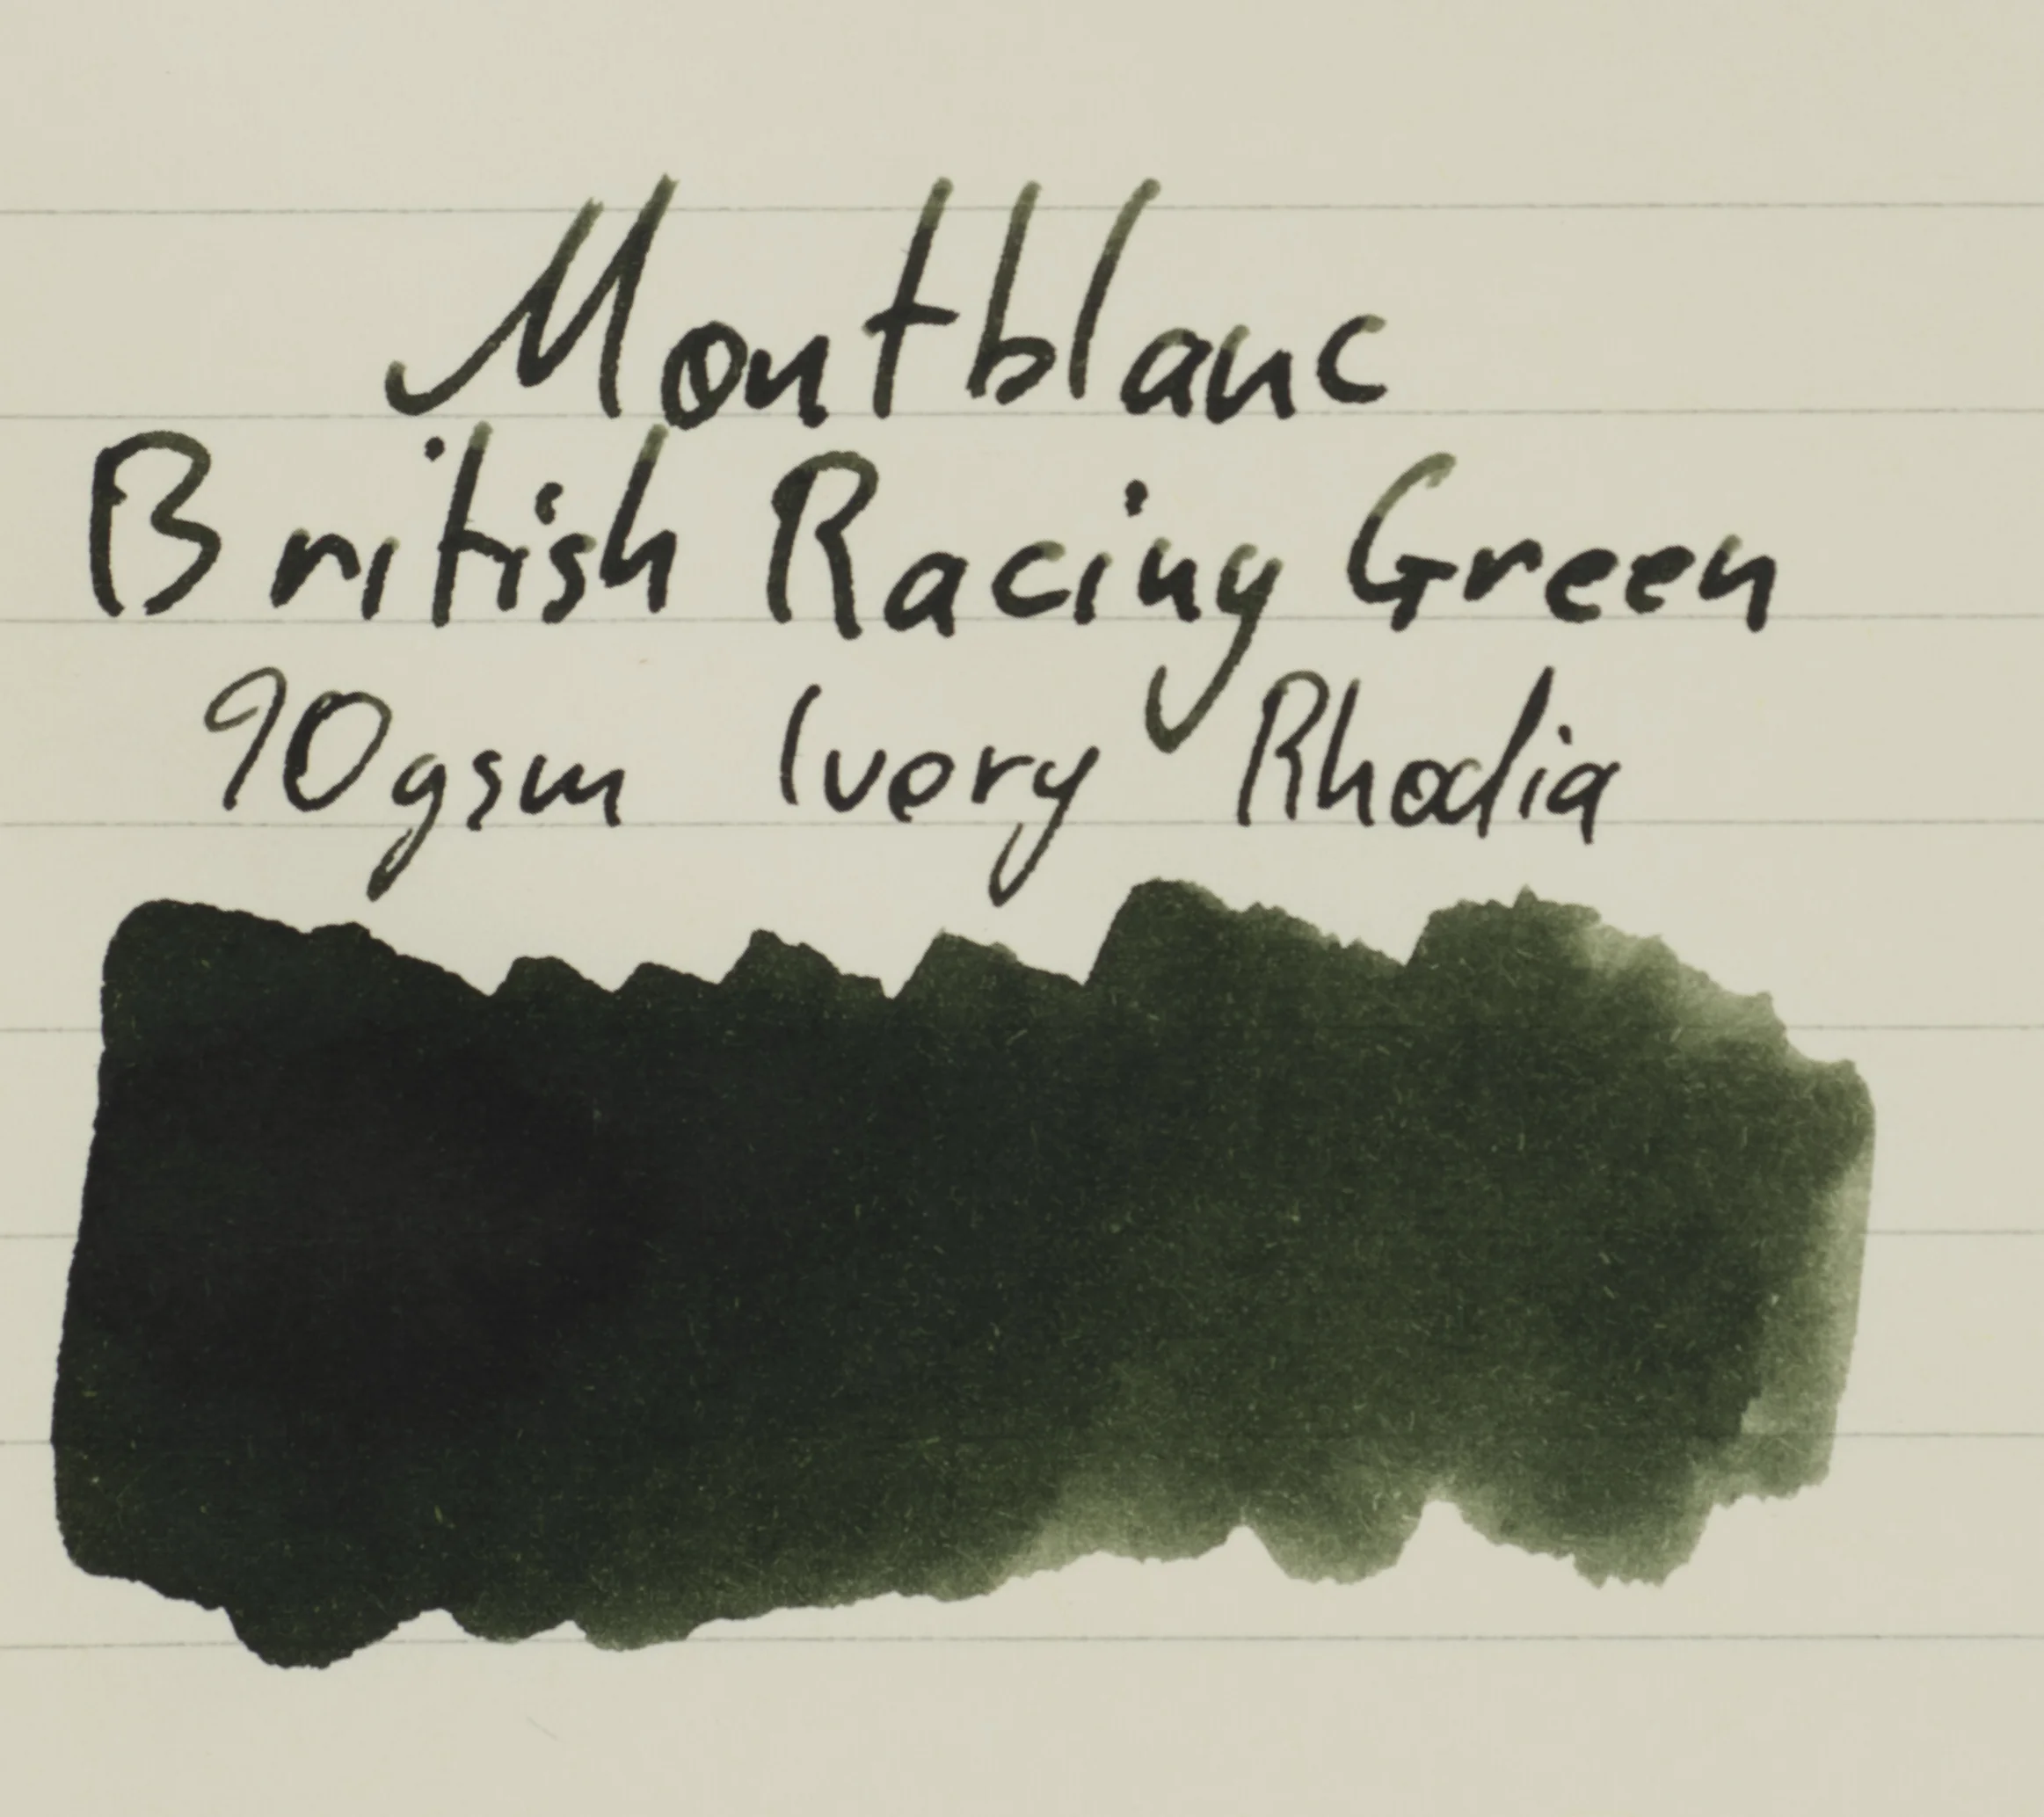 Montblanc
British Racing Green
90gsm Ivory Rhodia